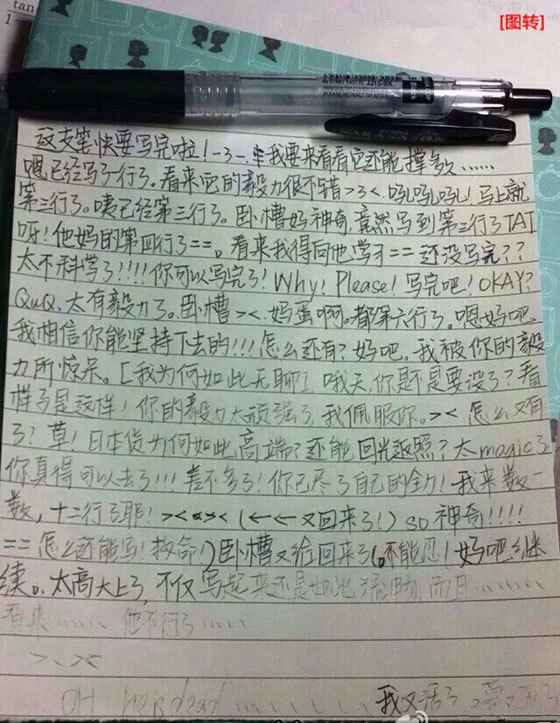 [图转]
tan
这支笔快要写完啦!-3-,我要来看看它还能撑多久......
嗯已经写了一行了。看来它的毅力很不错>3<.吼吼吼!马上就
第三行了。咦已经第三行了。卧槽好神奇,竟然写到第三行了TAT
呀!他妈的第四行了==。看来我得向他学习==还没写完??
太不科学了!!!!你可以写完了!Why!Please!写完吧!OKAY?
QuQ.太有毅力了。卧槽><.妈蛋啊。都第六行了。嗯好吧
我相信你能坚持下去的!!!怎么还有?好吧。我被你的毅
力所惊呆。[我为何如此无聊].哦天你是不是要没了?看
样子是这样!你的毅力太顽强了,我佩服你。><怎么又有
了?草!日本货为何如此高端?还能回光返照?太magic了
你真得可以去了!!!差不多了!你已尽了自己的全力!我来数一
数,十二行了耶!><(←←又回来了!)so神奇!!!!
==怎么还能写!救命!)卧槽又给回来了(不能忍!好吧继
续。太高大上了,不仅写起来还是如此流畅,而且......
看来...... 他不行了......
><
OH he is dead ...... 我又活了